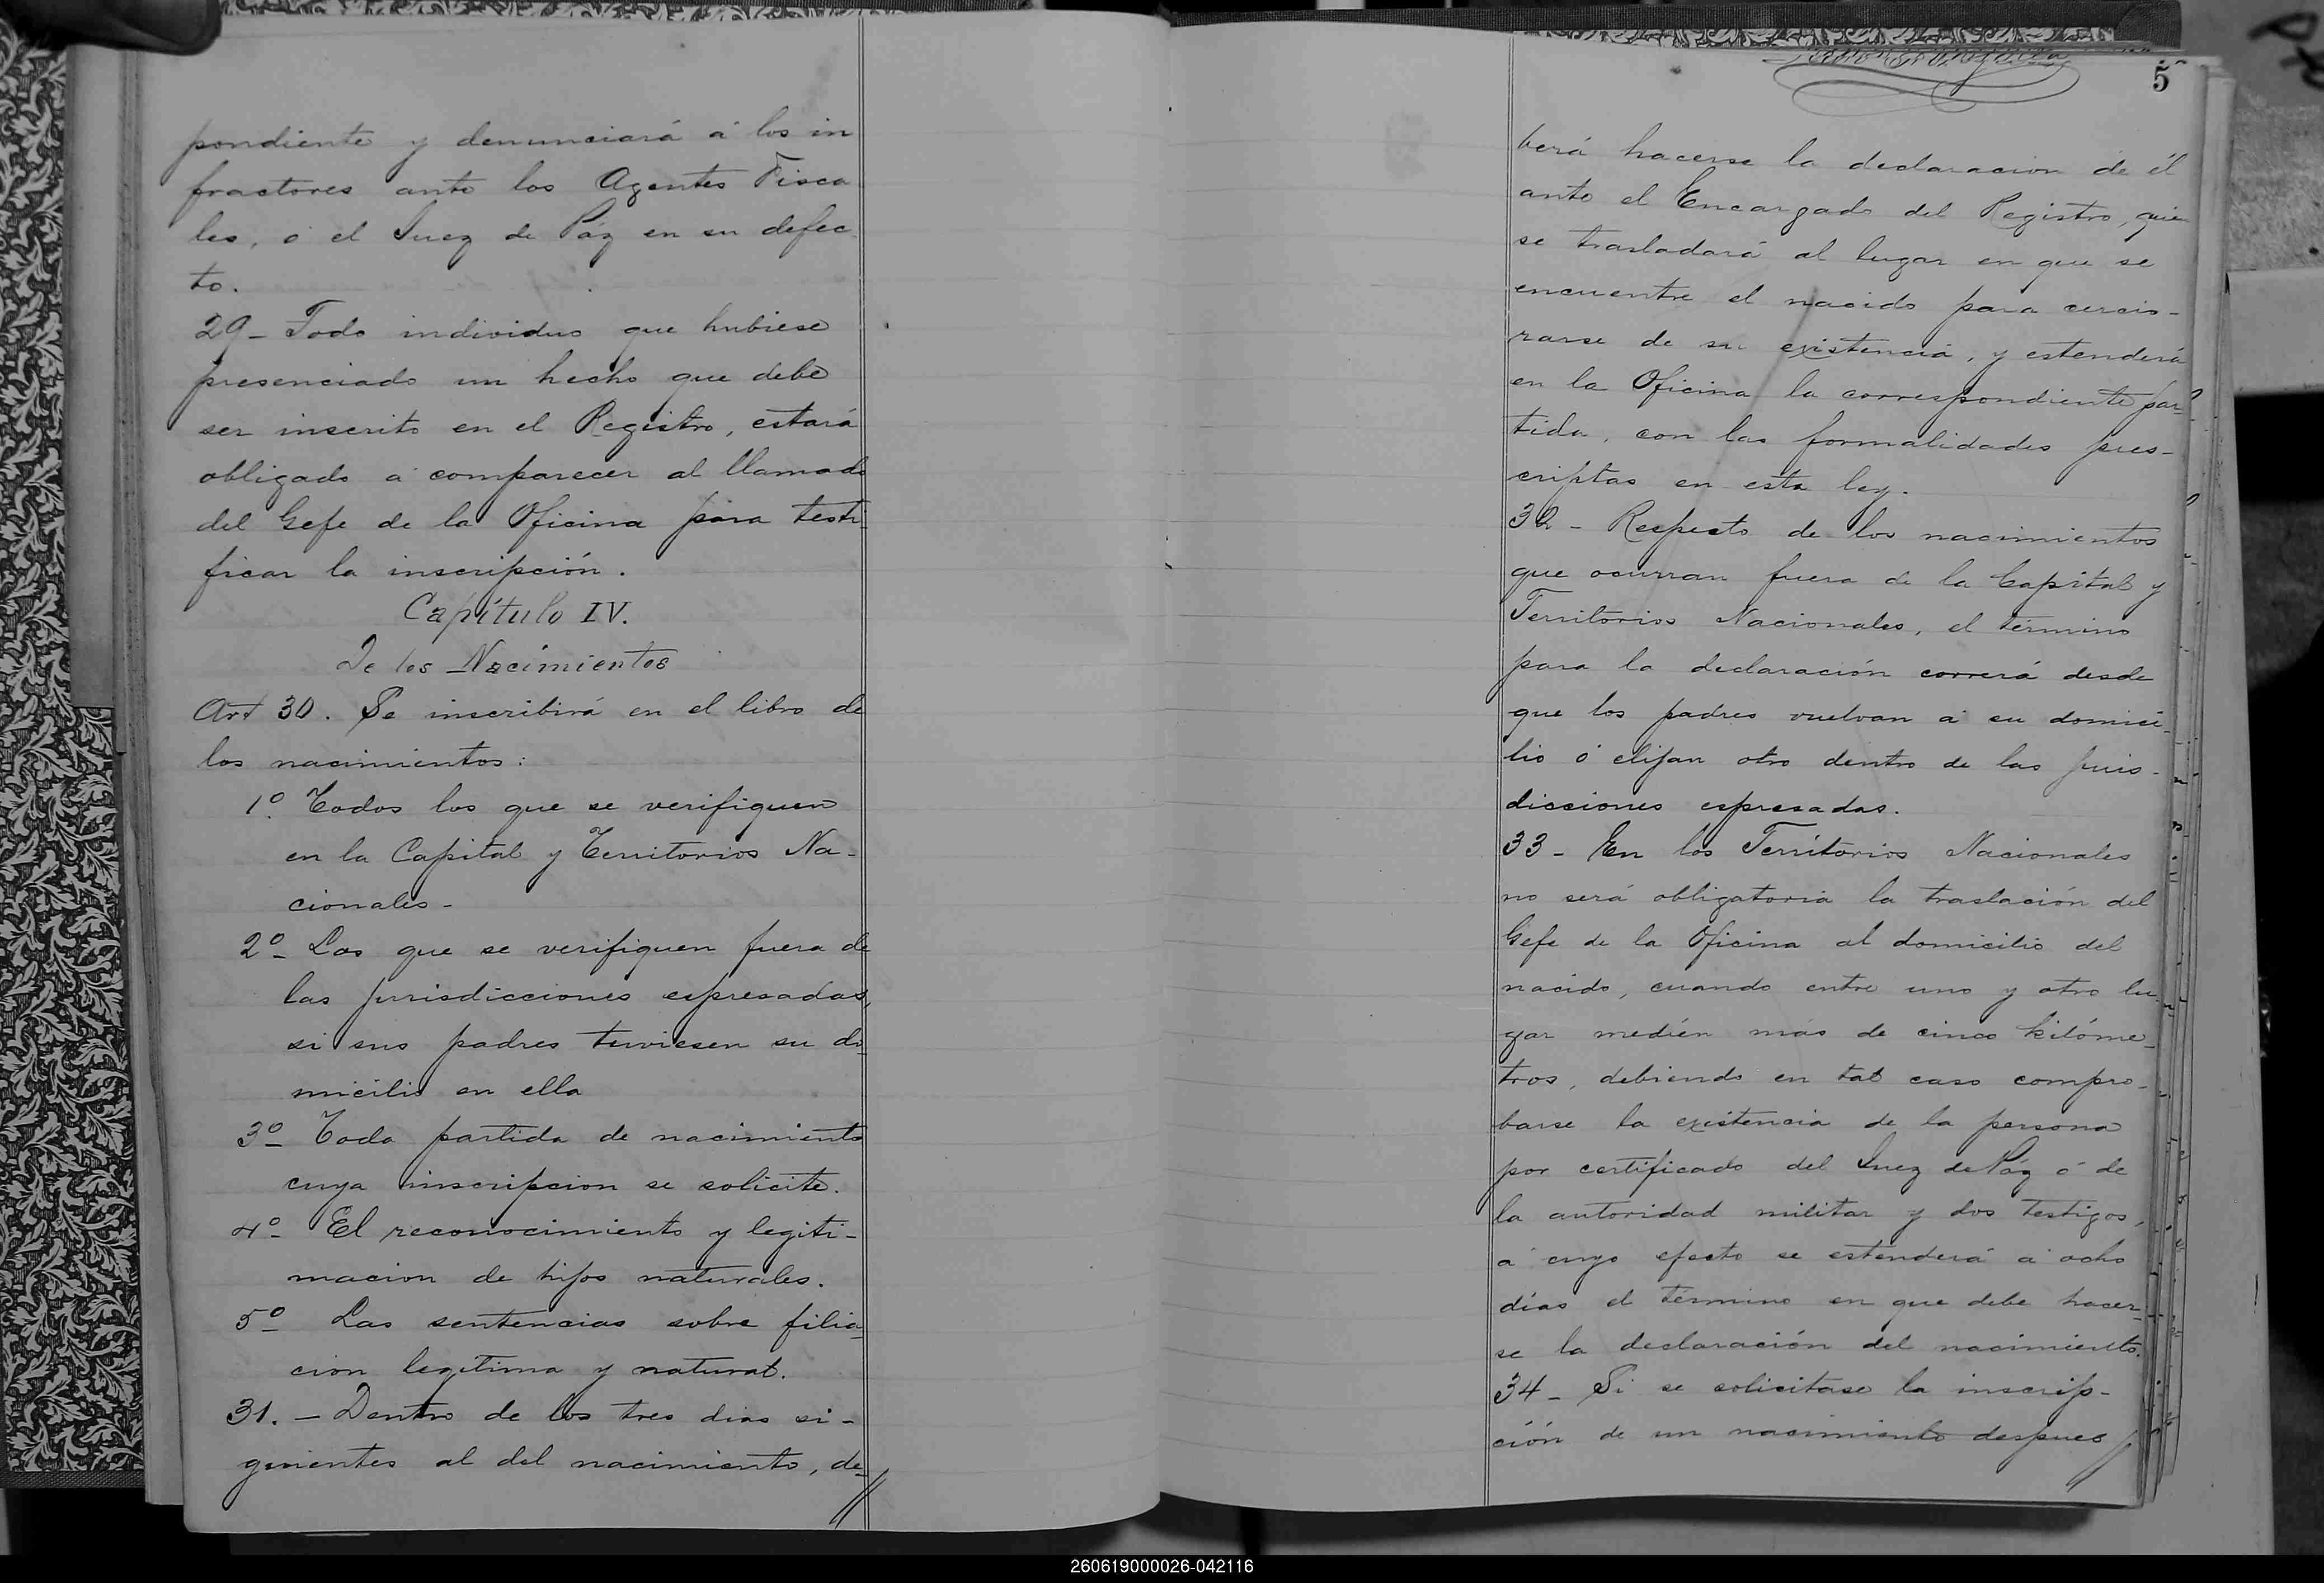 pondiente y denunciará á los in
fractores ante los Agentes Fisca
les, ó el Juez de Páz en su defec
to.
29 - Todo individuo que hubiese
presenciado un hecho que debe
ser inscrito en el Registro, estará
obligado á comparecer al llamado
del Gefe de la Oficina para testi
ficar la inscripción.
Capítulo IV.
De los Nacimientos
Art 30. Se inscribirá en el libro de
los nacimientos:
1º Todos los que se verifiquen
en la Capital y Territorios Na-
cionales -
2º Los que se verifiquen fuera de
las jurisdicciones espresadas,
si sus padres tuviesen su do-
micilio en ella
3º Toda partida de nacimiento
cuya inscripcion se solicite.
4º El reconocimiento y legiti-
macion de hijos naturales.
5º Las sentencias sobre filia-
cion legítima y natural.
31. - Dentro de los tres dias si-
guientes al del nacimiento, de-
5
berá hacerse la declaracion de él
ante el Encargado del Registro, quien
se trasladará al lugar en que se
encuentre el nacido para cercio-
rarse de su existencia, y estenderá
en la Oficina la correspondiente par-
tida, con las formalidades pres-
criptas en esta ley.
32 - Respecto de los nacimientos
que ocurran fuera de la Capital y
Territorios Nacionales, el término
para la declaración correrá desde
que los padres vuelvan á su domici-
lio ó elijan otro dentro de las juris-
dicciones espresadas.
33 - En los Territorios Nacionales
no será obligatoria la traslación del
Gefe de la Oficina al domicilio del
nacido, cuando entre uno y otro lu-
gar medién más de cinco kilóme-
tros, debiendo en tal caso compro-
barse la existencia de la persona
por certificado del Juez de Páz ó de
la autoridad militar y dos testigos,
á cuyo efecto se estenderá á ocho
días el término en que debe hacer-
se la declaración del nacimiento.
34 - Si se solicitase la inscrip-
ción de un nacimiento despues
260619000026-042116